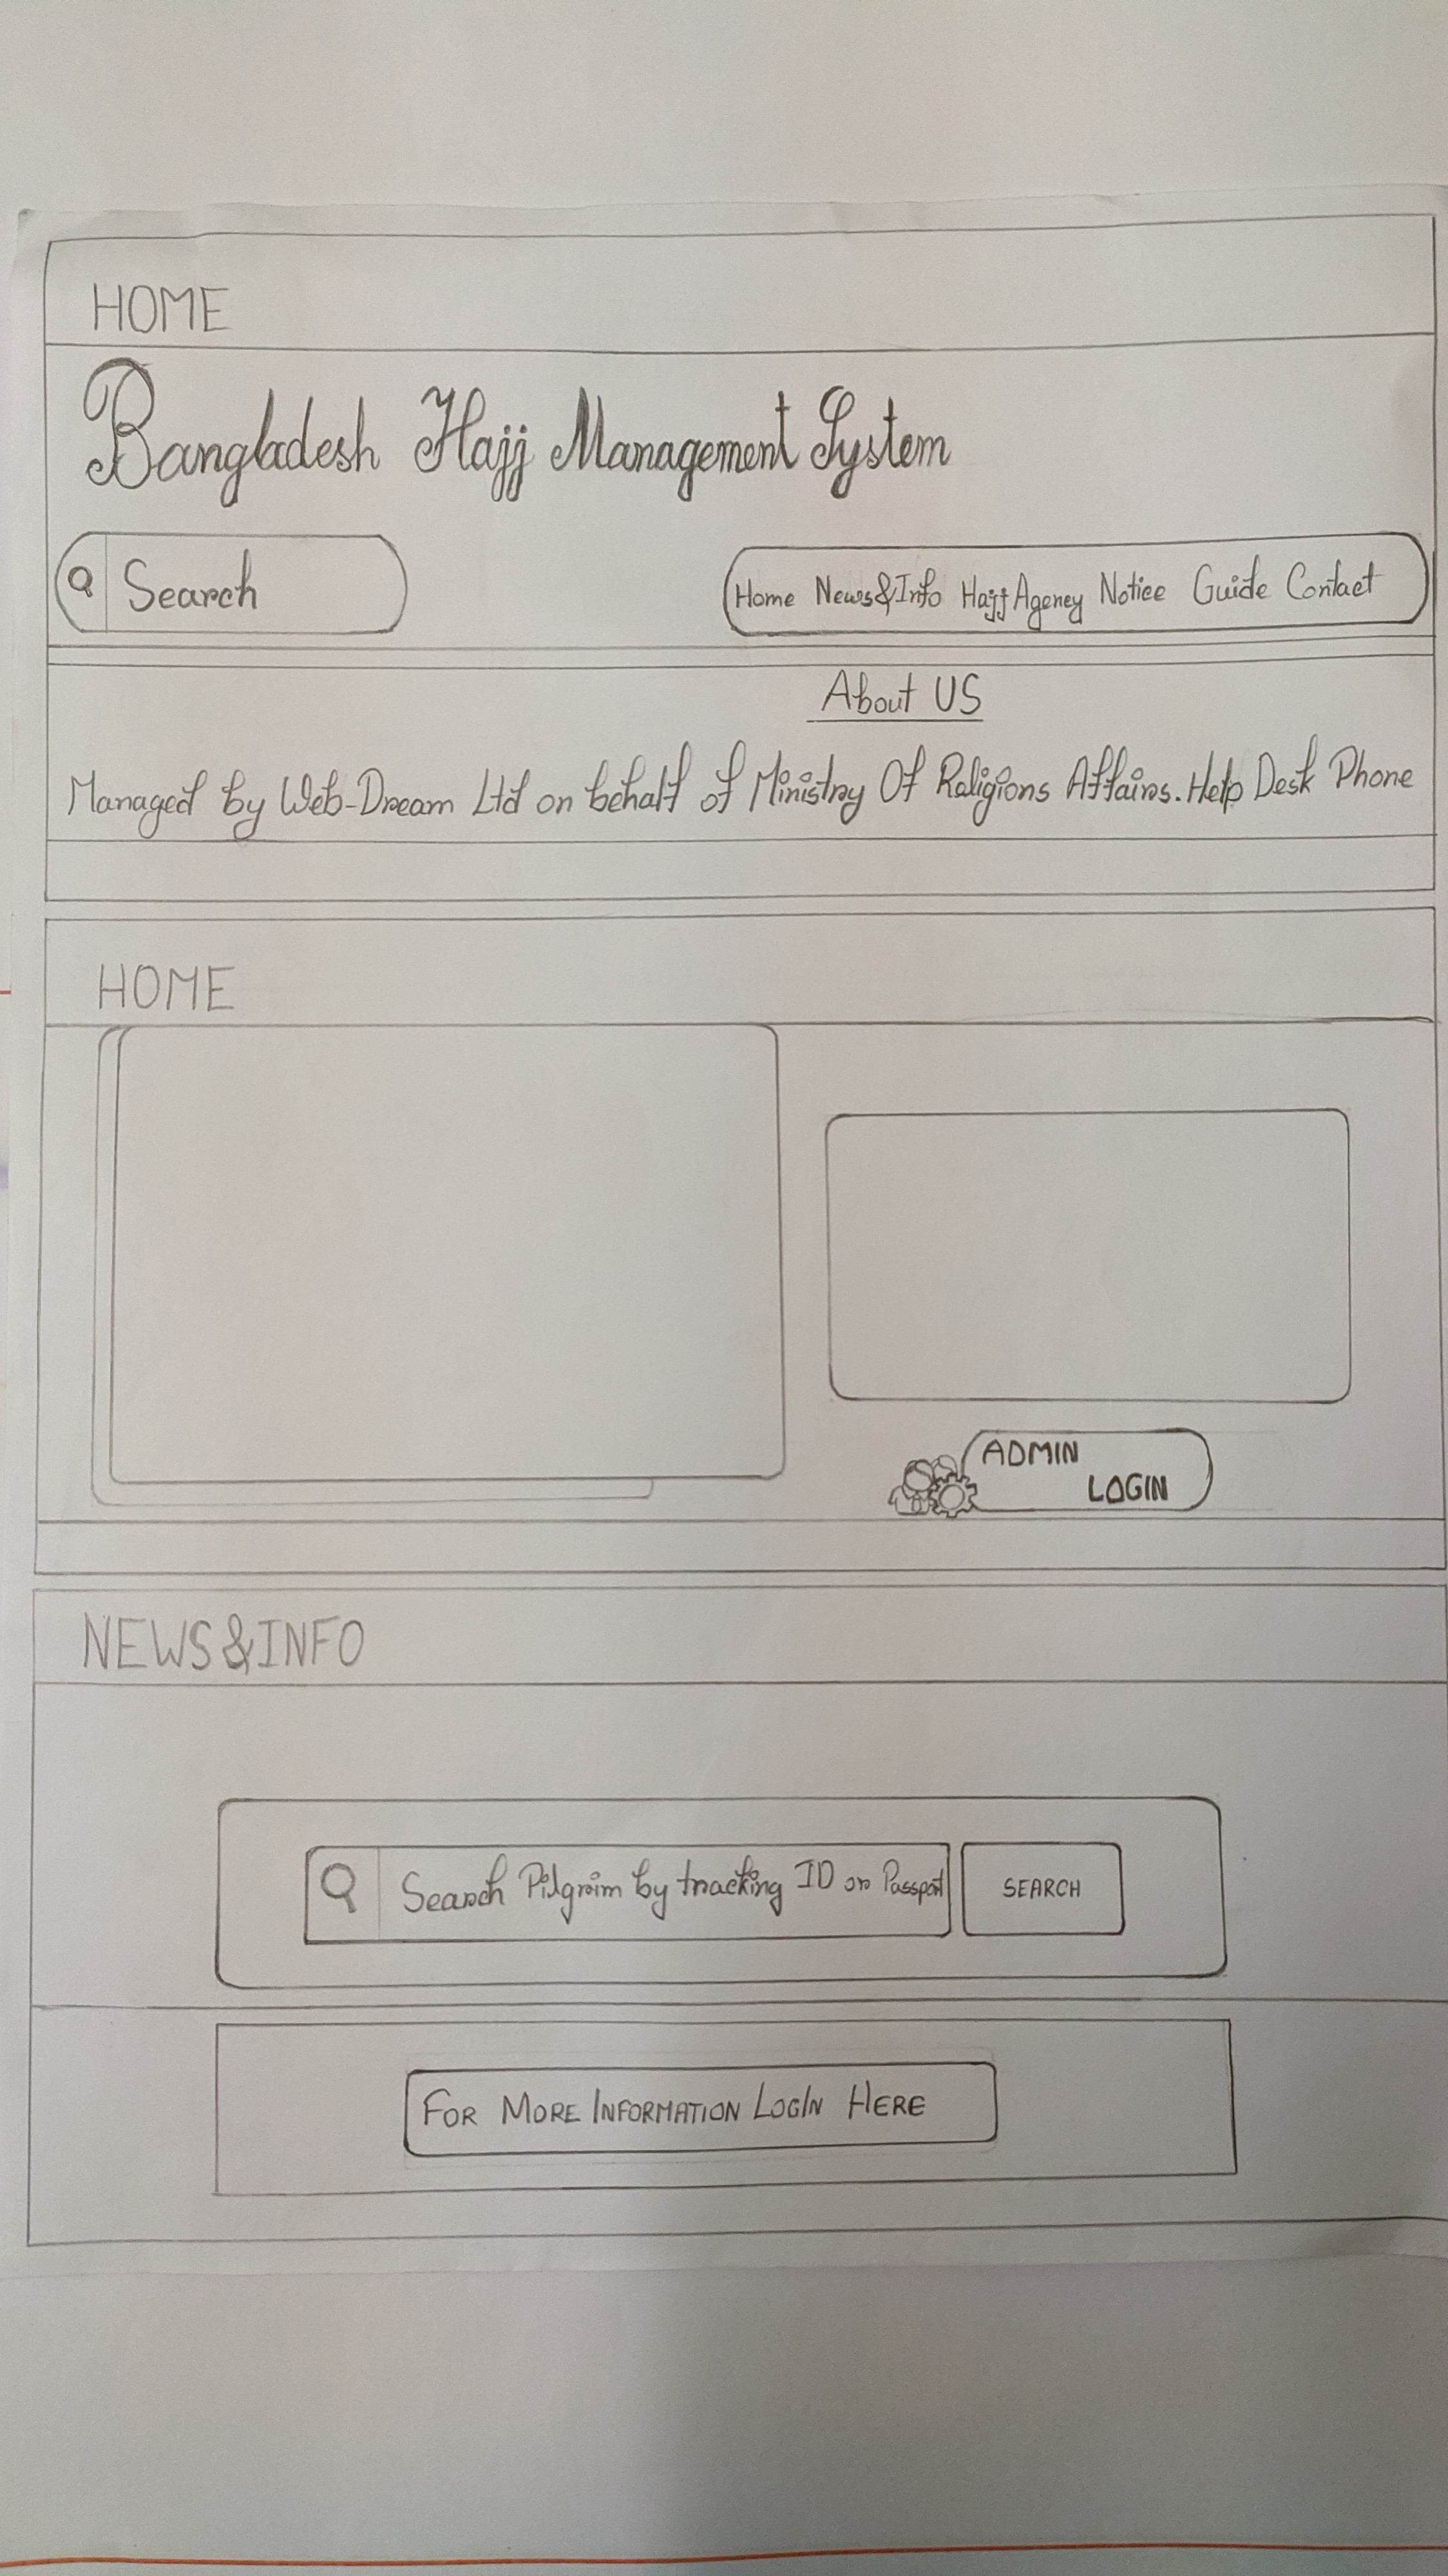 HOME
Bangladesh Hajj Management System
Search
Home News&Info Hajj Agency Notice Guide Contact
About US
Managed by Web-Dream Ltd on behalf of Ministry Of Religions Affairs. Help Desk Phone
HOME
ADMIN
LOGIN
NEWS&INFO
Search Pilgrim by tracking ID or Passport
SEARCH
FOR MORE INFORMATION LOGIN HERE